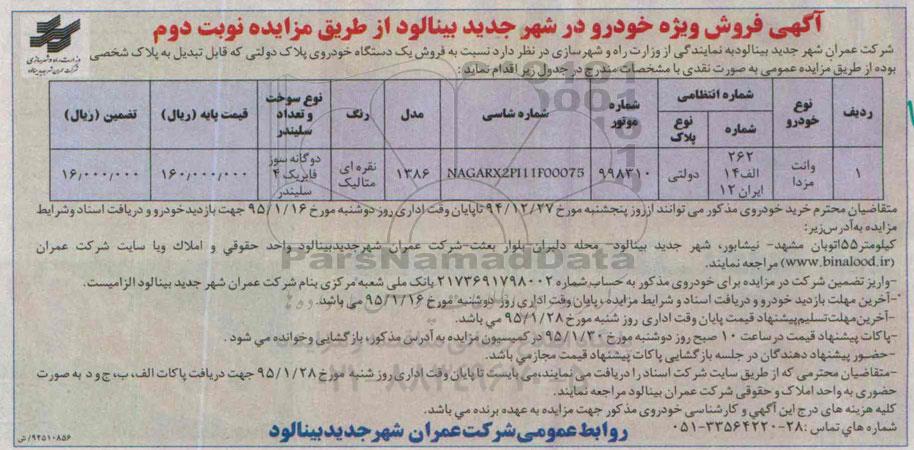 آگهی فروش ویژه خودرو در شهر جدید بینالود از طریق مزایده نوبت دوم
وزارت راه و شهرسازی
شرکت عمران شهر جدید بینالود
شرکت عمران شهر جدید بینالود به نمایندگی از وزارت راه و شهرسازی در نظر دارد نسبت به فروش یک دستگاه خودروی پلاک دولتی که قابل تبدیل به پلاک شخصی
بوده از طریق مزایده عمومی به صورت نقدی با مشخصات مندرج در جدول زیر اقدام نماید:
ردیف | نوع خودرو | شماره انتظامی | شماره | نوع پلاک | شماره موتور | شماره شاسی | مدل | رنگ | نوع سوخت و تعداد سلیندر | قیمت پایه (ریال) | تضمین (ریال)
۱ | وانت مزدا | ۲۶۲ الف۱۴ ایران ۱۲ | دولتی | ۹۹۸۳۱۰ | NAGARX2PI11F00075 | ۱۳۸۶ | نقره ای متالیک | دوگانه سوز فابریک ۴ سلیندر | ۱۶۰,۰۰۰,۰۰۰ | ۱۶,۰۰۰,۰۰۰
متقاضیان محترم خرید خودروی مذکور می توانند از روز پنجشنبه مورخ ۹۴/۱۲/۲۷ تا پایان وقت اداری روز دوشنبه مورخ ۹۵/۱/۱۶ جهت بازدید خودرو و دریافت اسناد و شرایط
مزایده به آدرس زیر:
کیلومتر ۵۵ اتوبان مشهد- نیشابور، شهر جدید بینالود- محله دلیران- بلوار بعثت- شرکت عمران شهر جدید بینالود واحد حقوقی و املاک ویا سایت شرکت عمران
(www.binalood.ir) مراجعه نمایند.
-واریز تضمین شرکت در مزایده برای خودروی مذکور به حساب شماره ۲۱۷۳۶۹۱۷۹۸۰۰۲ بانک ملی شعبه مرکزی بنام شرکت عمران شهر جدید بینالود الزامیست.
-آخرین مهلت بازدید خودرو و دریافت اسناد و شرایط مزایده، پایان وقت اداری روز دوشنبه مورخ ۹۵/۱/۱۶ می باشد.
-آخرین مهلت تسلیم پیشنهاد قیمت پایان وقت اداری روز شنبه مورخ ۹۵/۱/۲۸ می باشد.
-پاکات پیشنهاد قیمت در ساعت ۱۰ صبح روز دوشنبه مورخ ۹۵/۱/۳۰ در کمیسیون مزایده به آدرس مذکور، بازگشایی وخوانده می شود.
-حضور پیشنهاد دهندگان در جلسه بازگشایی پاکات پیشنهاد قیمت مجاز می باشد.
-متقاضیان محترمی که از طریق سایت شرکت اسناد را دریافت می نمایند، می بایست تا پایان وقت اداری روز شنبه مورخ ۹۵/۱/۲۸ جهت دریافت پاکات الف، ب، ج و د به صورت
حضوری به واحد املاک و حقوقی شرکت عمران بینالود مراجعه نمایند.
کلیه هزینه های درج این آگهی و کارشناسی خودروی مذکور جهت مزایده به عهده برنده می باشد.
شماره های تماس: ۲۸-۳۳۵۶۴۲۲۰-۰۵۱
روابط عمومی شرکت عمران شهر جدید بینالود
۹۴۵۱۰۸۵۶/ش
ParsNamadData